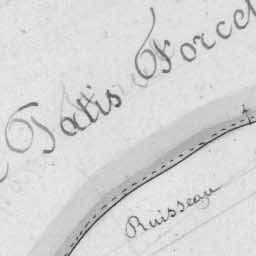 Patis Forcet
Ruisseau